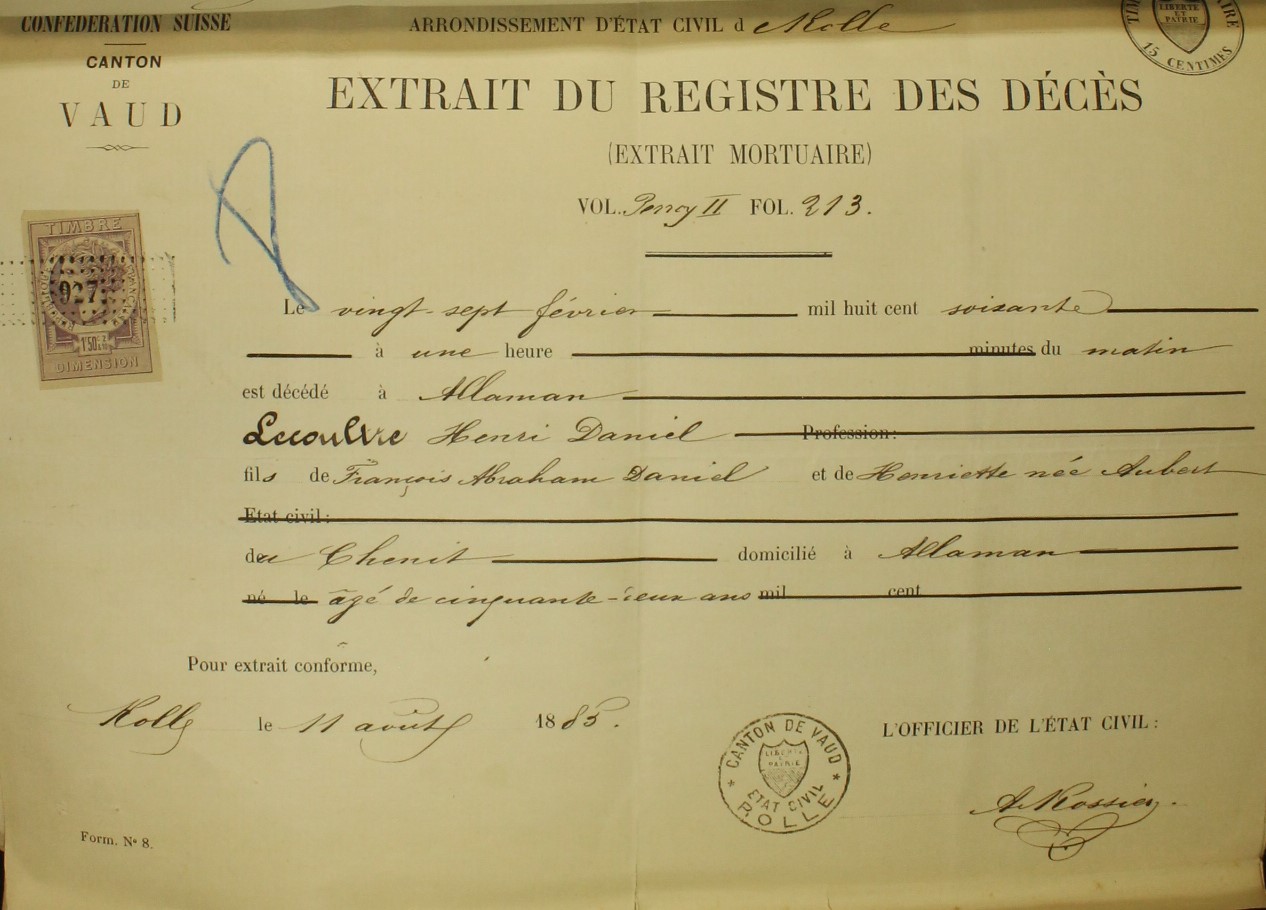 CONFÉDÉRATION SUISSE
CANTON
DE
VAUD
ARRONDISSEMENT D'ÉTAT CIVIL d Rolle
LIBERTÉ
ET
PATRIE
15 CENTIMES
EXTRAIT DU REGISTRE DES DÉCÈS
(EXTRAIT MORTUAIRE)
VOL. Perroy II FOL. 213.
TIMBRE
927
1'50
DIMENSION
Le vingt-sept février mil huit cent soixante
à une heure minutes du matin
est décédé à Allaman
Lecoultre Henri Daniel Profession:
fils de François Abraham Daniel et de Henriette née Aubert
Etat civil:
du Chenit domicilié à Allaman
né le âgé de cinquante-deux ans mil cent
Pour extrait conforme,
Rolle le 11 août 1885.
L'OFFICIER DE L'ÉTAT CIVIL:
CANTON DE VAUD
LIBERTÉ
ET
PATRIE
ETAT CIVIL
ROLLE
A. Rossier.
Form. Nº 8.